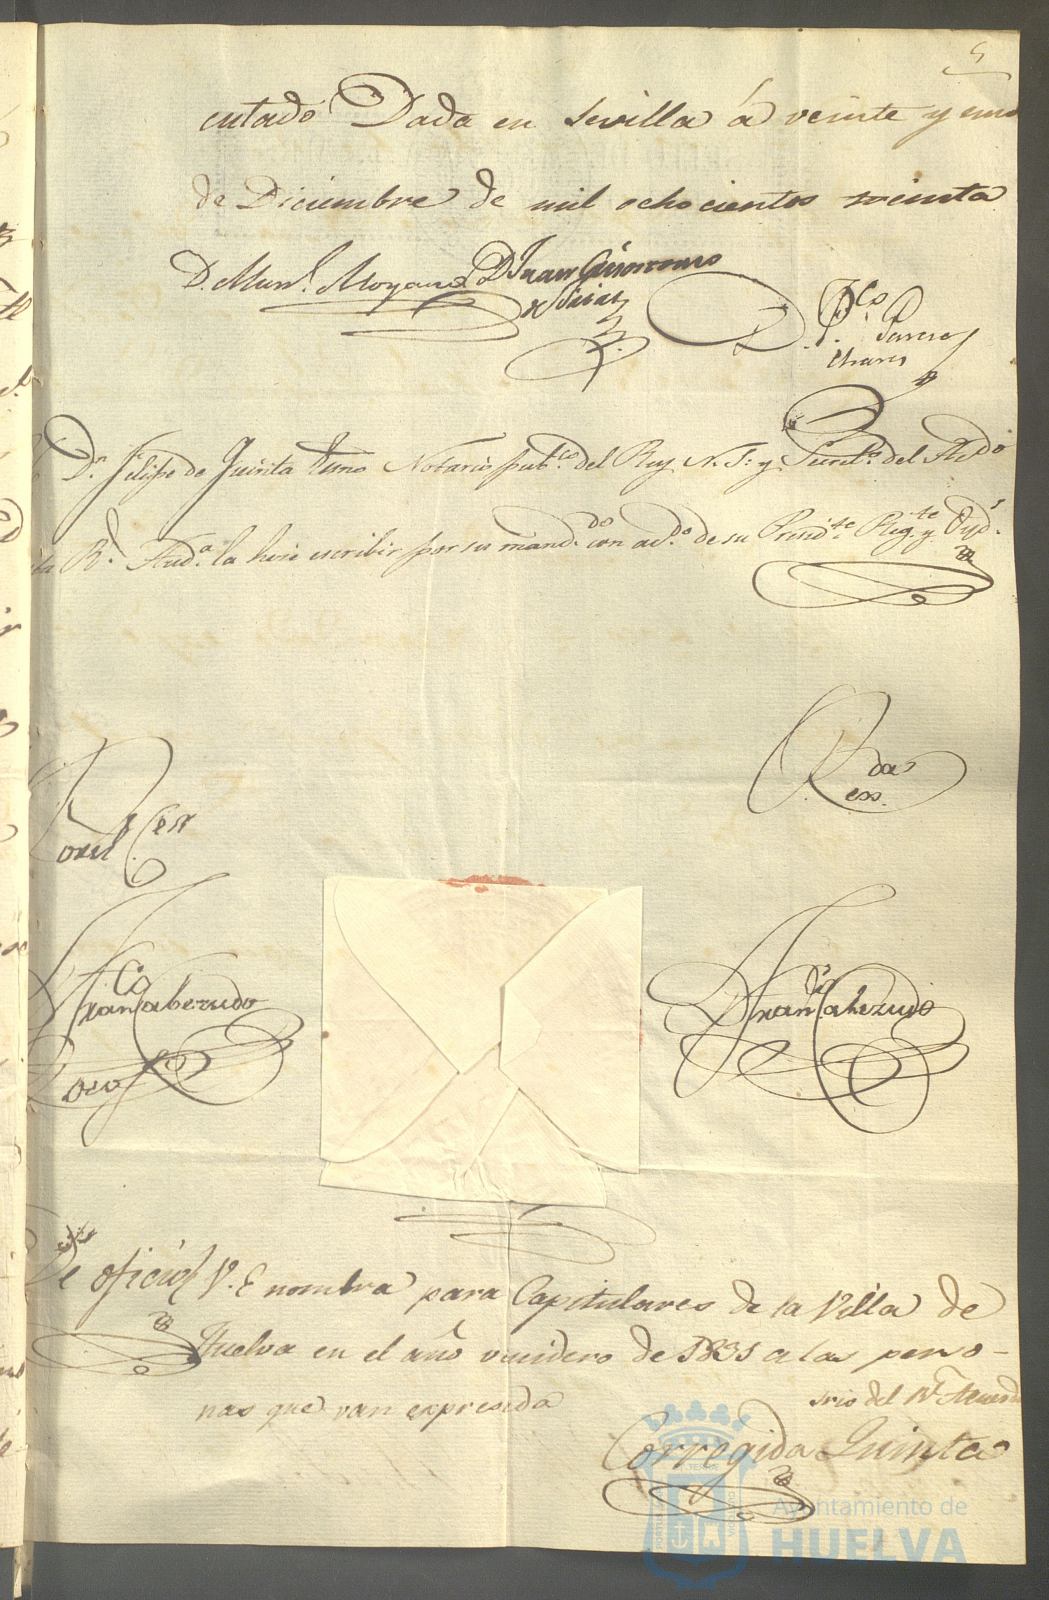 5
cutado Dada en Sevilla á veinte y uno
de Diciembre de mil ochocientos treinta
D. Man.l Moyano D Juan Gironimo
D. Fco Parera
Chares
Dn. Felipe de Quinta Numo Notario pub.co del Rey N. S. y Secret.o del Acdo
R.l Aud.a la hice escribir por su mand.do con acd.o de su Presid.te Reg.te y Oyd.s
Rda
exs.
Cco
Fran Cabezudo
Fran Cabezudo
De oficio V. E nombra para Capitulares de la Villa de
Huelva en el año venidero de 1831 a las perso-
nas que van expresada
srio del Rl Acuerdo
Corregida Quinta
Ayuntamiento de
HUELVA